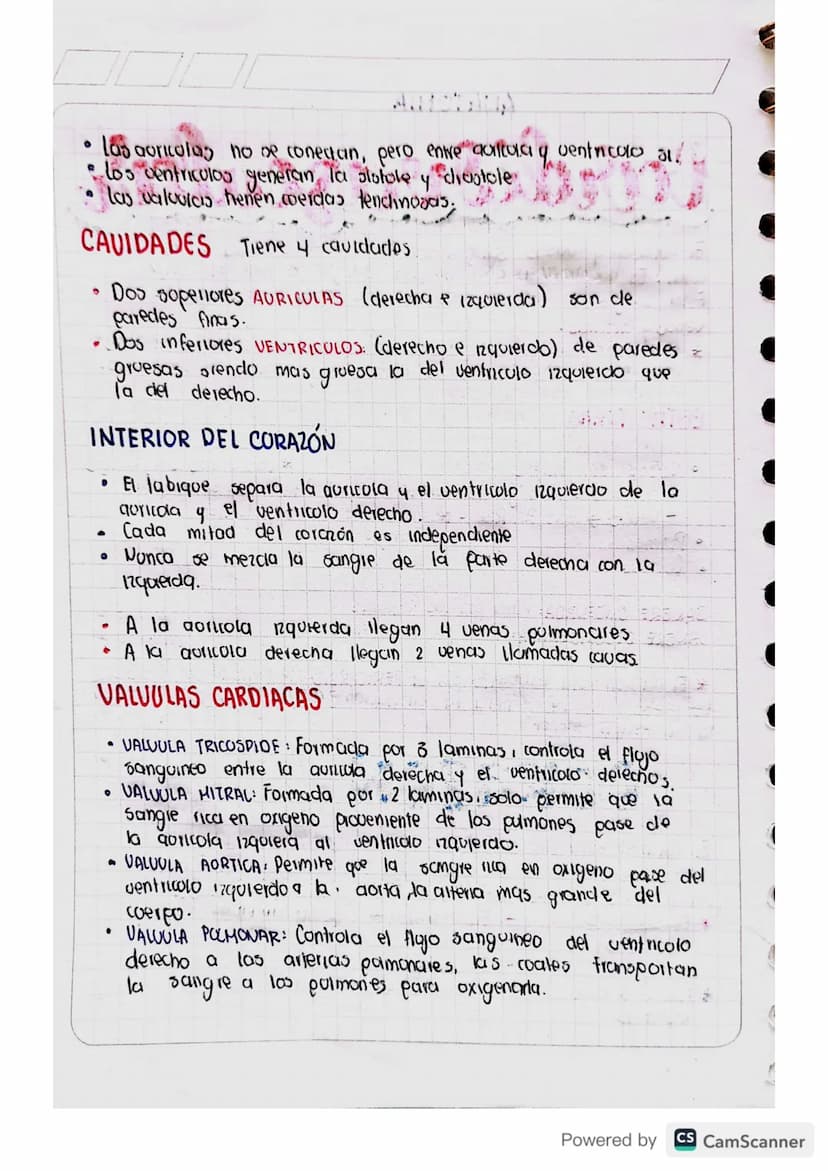 • Las auriculas no se conectan, pero entre auricula y ventriculo si.
• Los ventriculos generan la sistole y diastole
• Las valvulas tienen cuerdas tendinosas.
CAVIDADES Tiene 4 cavidades
• Dos superiores AURICULAS (derecha e izquierda) son de
paredes finas.
• Dos inferiores VENTRICULOS: (derecho e izquierdo) de paredes
gruesas siendo mas gruesa la del ventriculo izquierdo que
la del derecho.
INTERIOR DEL CORAZÓN
• El tabique separa la auricula y el ventriculo izquierdo de la
auricula y el ventriculo derecho.
• Cada mitad del corazón es independiente
• Nunca se mezcla la sangre de la parte derecha con la
izquierda.
• A la auricula izquierda llegan 4 venas pulmonares
• A la auricula derecha llegan 2 venas llamadas cavas
VALVULAS CARDIACAS
• VALVULA TRICUSPIDE: Formada por 3 laminas, controla el flujo
sanguineo entre la auricula derecha y el ventriculo derechos.
• VALVULA MITRAL: Formada por 2 laminas, solo permite que la
sangre rica en oxigeno proveniente de los pulmones pase de
la auricola izquiera al ventriculo izquierdo.
• VALVULA AORTICA: Permite que la sangre rica en oxigeno pase del
ventriculo izquierdo a la aorta, la arteria mas grande del
cuerpo.
• VALVULA PULMONAR: Controla el flujo sanguineo del ventriculo
derecho a las arterias pulmonares, las cuales transportan
la sangre a los pulmones para oxigenarla.
Powered by CS CamScanner